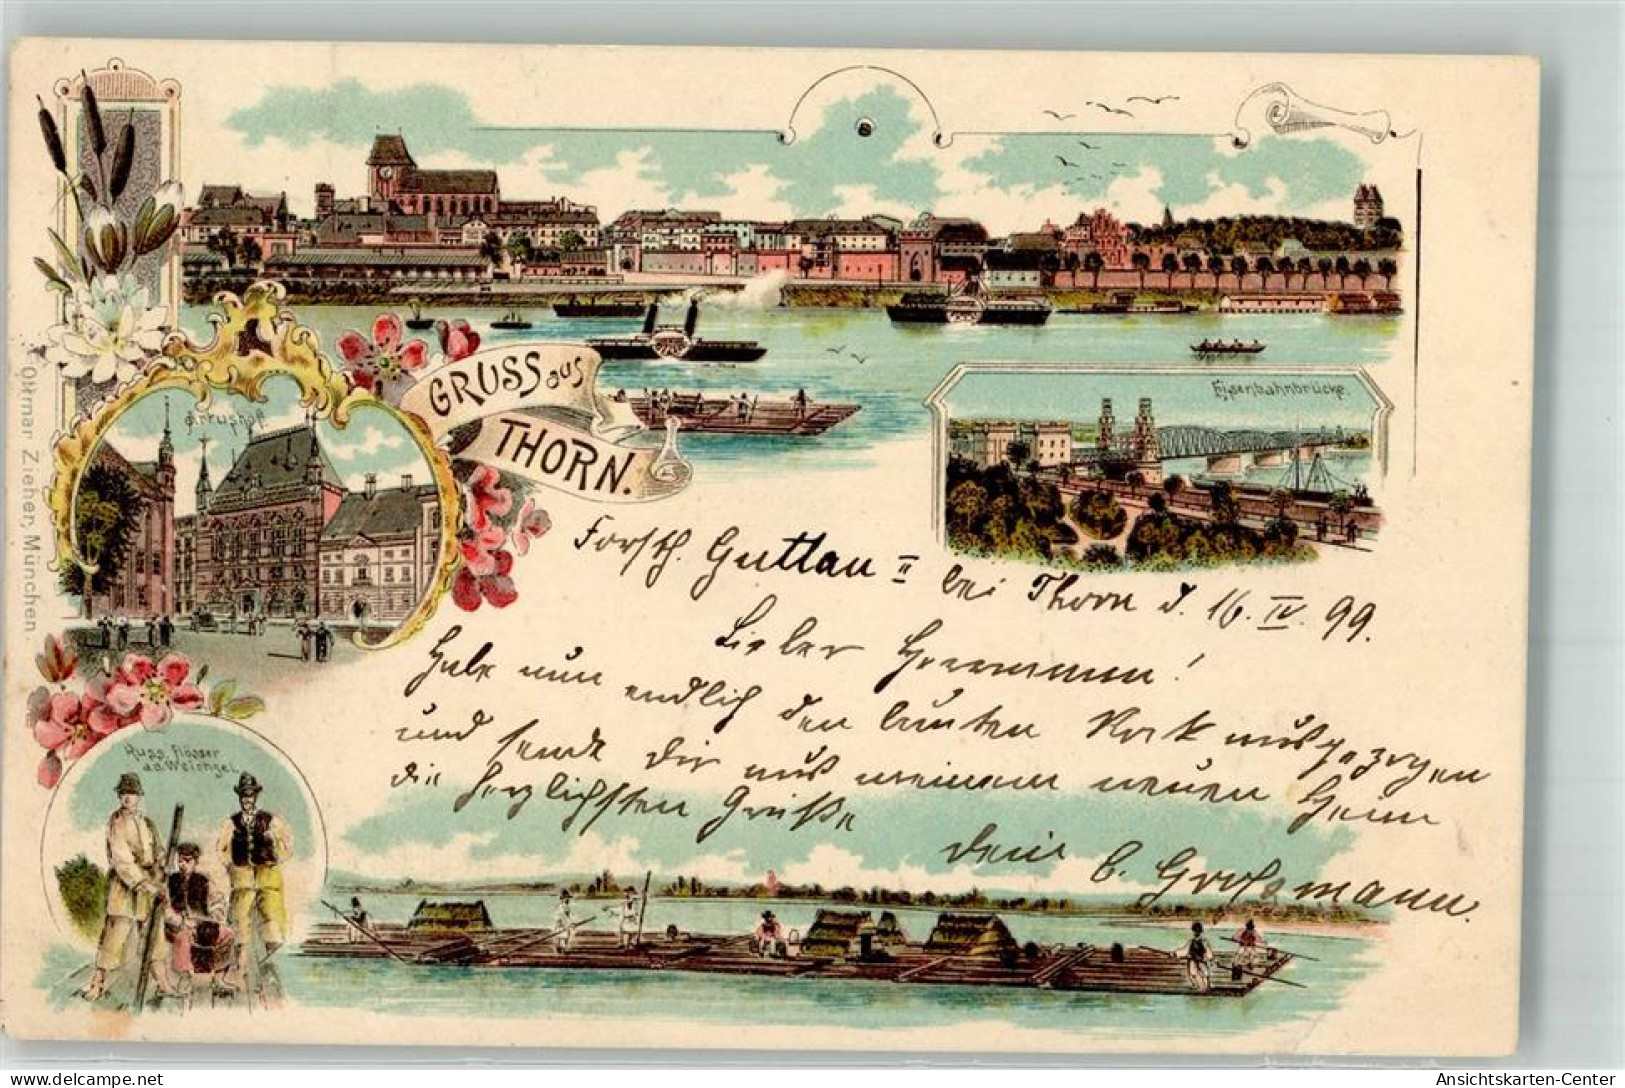 GRUSS aus
THORN.
Artushof
Eisenbahnbrücke.
Russ. Flösser
a.d. Weichsel.
Ottmar Zieher, München.
Forsth. Guttau II bei Thorn d. 16. IV. 99.
Lieber Herrmann!
Habe nun endlich den bunten Rock ausgezogen
und sende Dir aus meinem neuen Heim
die herzlichsten Grüße
Dein C. Großmann.
Ansichtskarten-Center